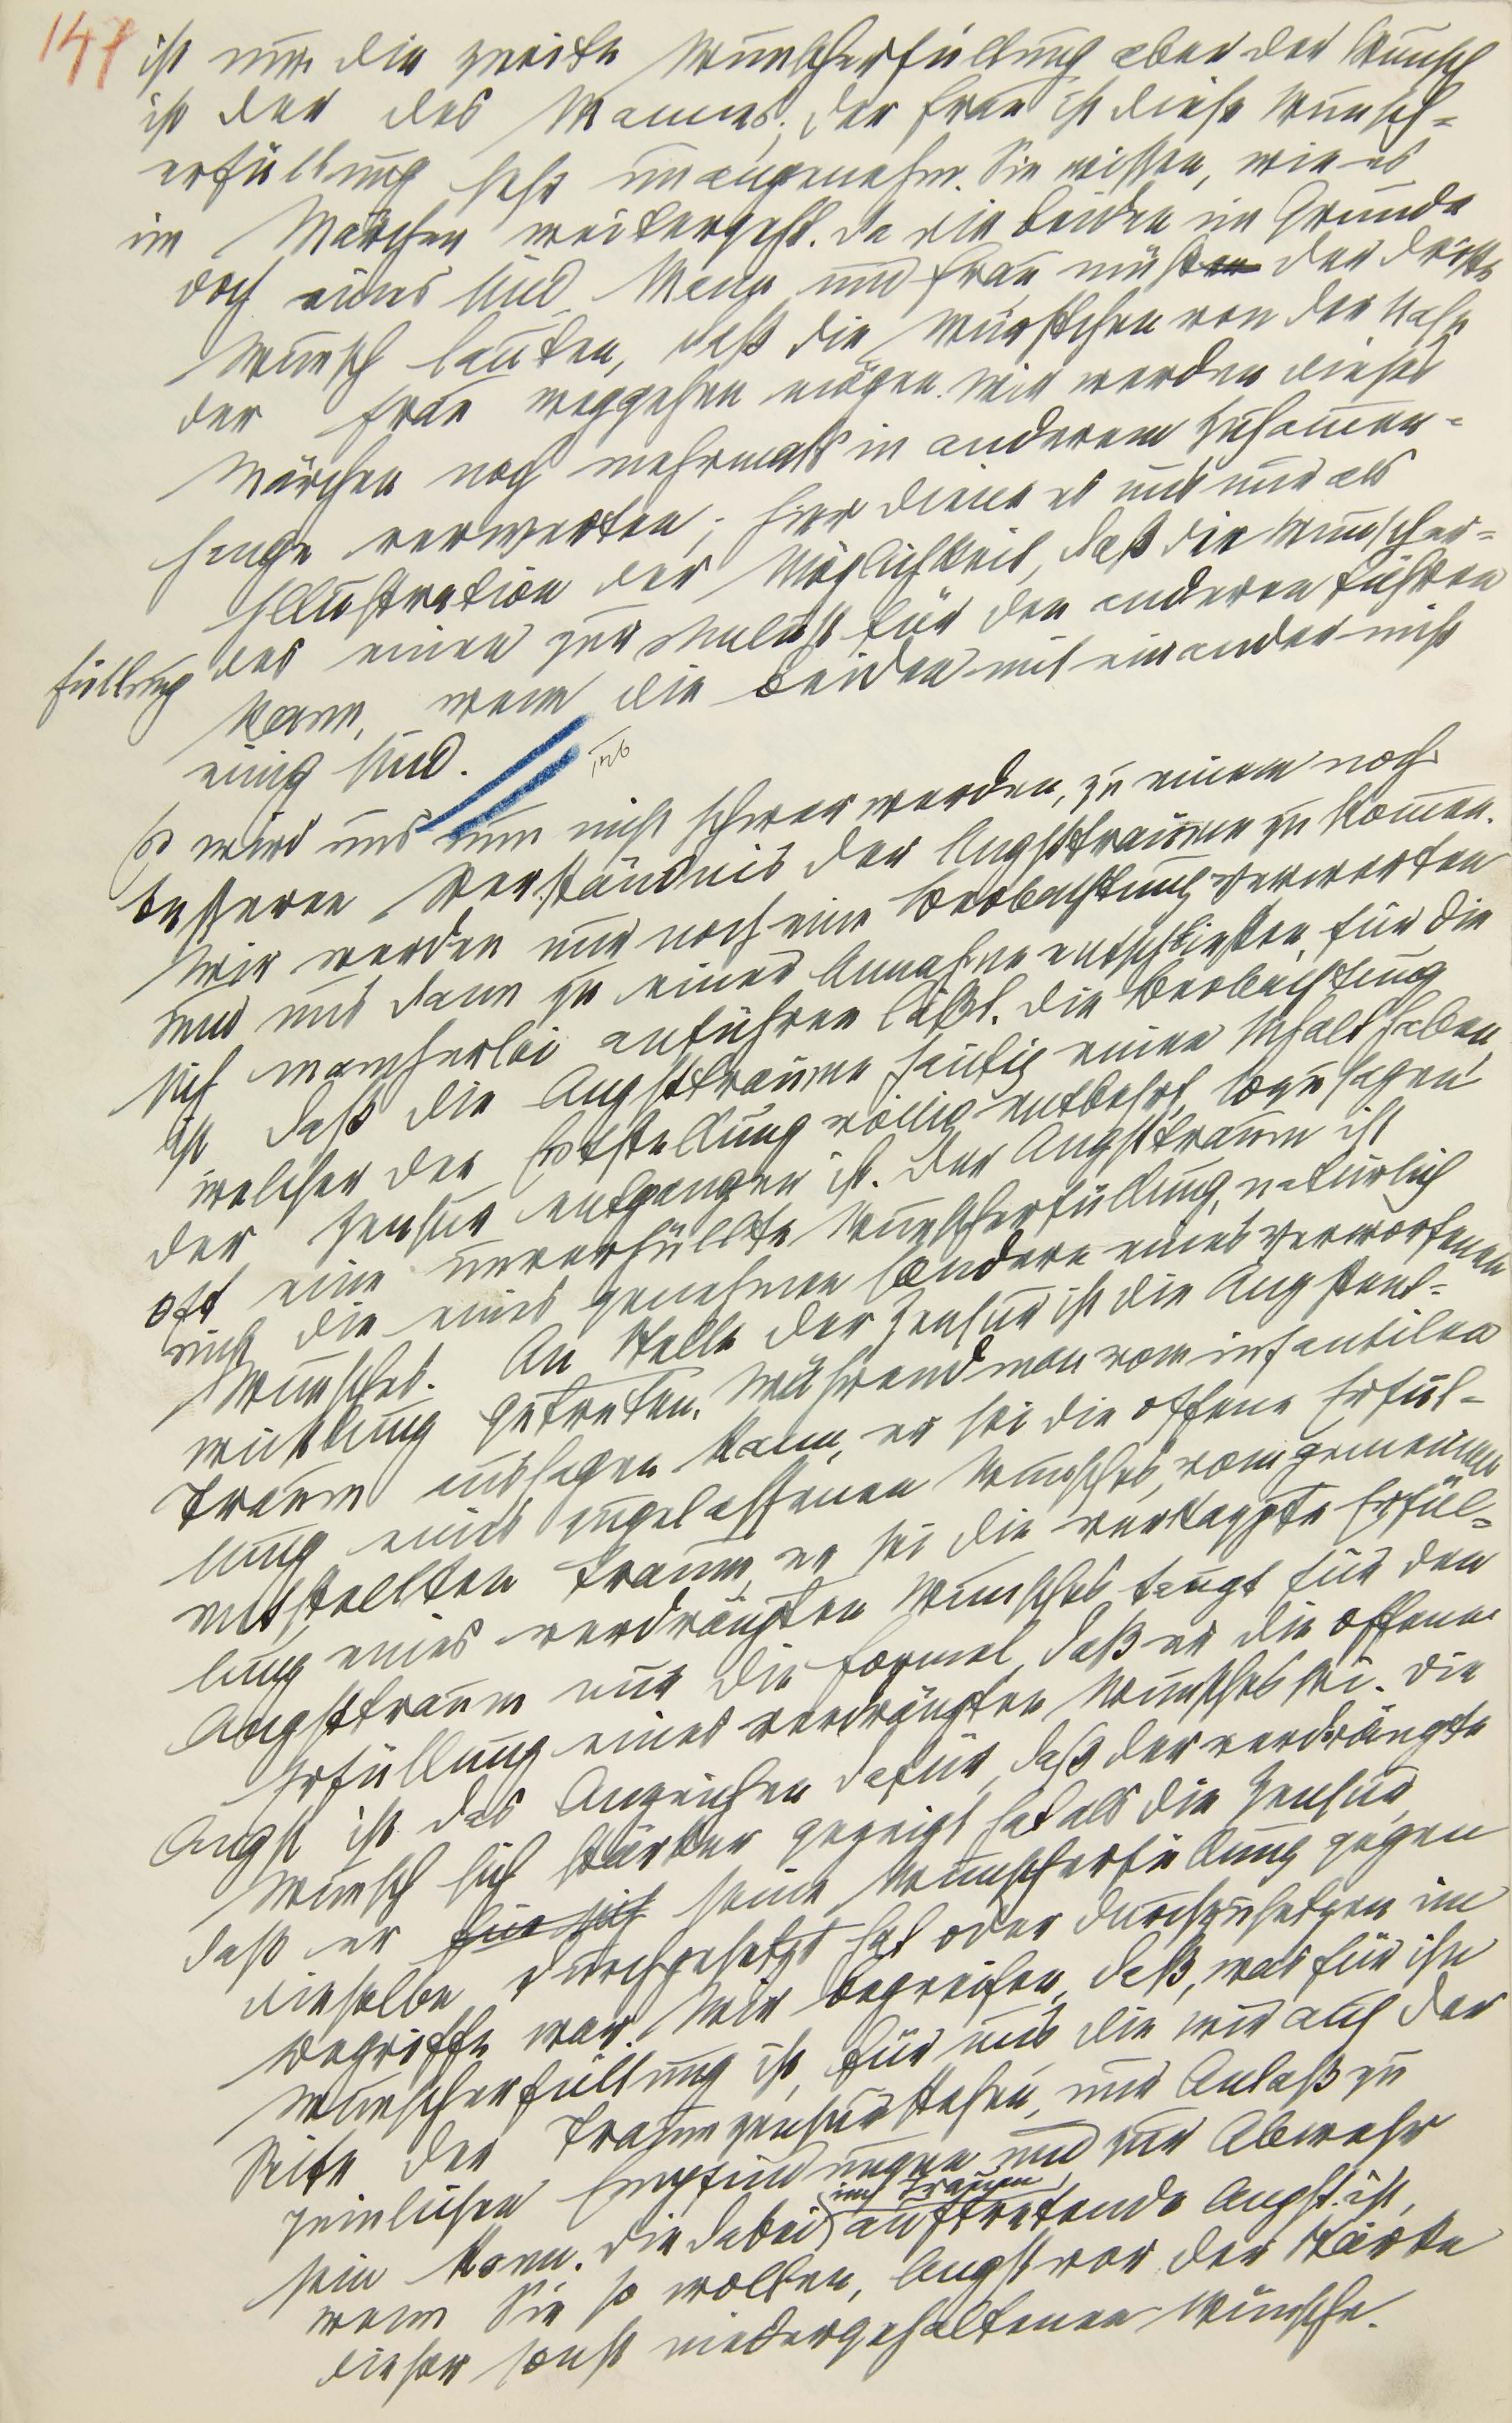 147
ist nun die zweite Wunscherfüllung aber der Wunsch
ist der des Mannes; der Frau ist diese Wunsch-
erfüllung sehr unangenehm. Sie wissen, wie es
im Märchen weitergeht. Da die beiden im Grunde
doch eines sind, Mann und Frau, muß der dritte
Wunsch lauten, daß die Würstchen von der Nase
der Frau weggehen mögen. Wir werden dieses
Märchen noch mehrmals in anderem Zusammen-
hange verwerten; hier diene es uns nur als
Illustration der Möglichkeit, daß die Wunscher-
füllung des einen zur Unlust für den anderen führen
kann, wenn die beiden mit einander nicht
einig sind.
Es wird uns nun nicht schwer werden, zu einem noch
besseren Verständnis der Angstträume zu kommen.
Wir werden nur noch eine Beobachtung verwerten
und uns dann zu einer Annahme entschließen, für die
sich mancherlei anführen läßt. Die Beobachtung
ist, daß die Angstträume häufig einen Inhalt haben,
welcher der Entstellung völlig entbehrt, sozusagen
der Zensur entgangen ist. Der Angsttraum ist
oft eine unverhüllte Wunscherfüllung, natürlich
nicht die eines genehmen sondern eines verworfenen
Wunsches. An Stelle der Zensur ist die Angstent-
wicklung getreten. Während man vom infantilen
Traum aussagen kann, er sei die offene Erfül-
lung eines zugelassenen Wunsches, vom gemeinen
entstellten Traum, er sei die verkappte Erfül-
lung eines verdrängten Wunsches taugt für den
Angsttraum nur die Formel, daß er die offene
Erfüllung eines verdrängten Wunsches sei. Die
Angst ist das Anzeichen dafür, daß der verdrängte
Wunsch sich stärker gezeigt hat als die Zensur,
daß er für sich seine Wunscherfüllung gegen
dieselbe durchgesetzt hat oder durchzusetzen im
Begriffe war. Wir begreifen, daß, was für ihn
Wunscherfüllung ist, für uns, die wir auf der
Seite der Traumzensur stehen, nur Anlaß zu
peinlichen Empfindungen und zur Abwehr
im Traum
sein kann. Die dabei auftretende Angst ist,
wenn Sie so wollen, Angst vor der Stärke
dieser sonst niedergehaltenen Wünsche.